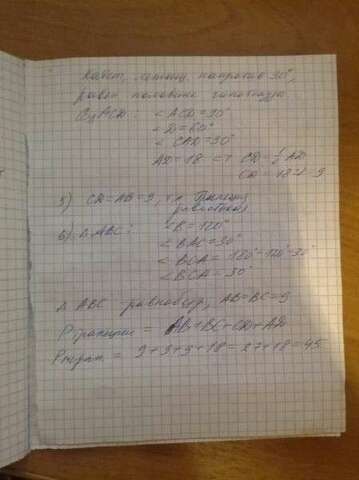 Катет, лежащ. напротив 30°,
равен половине гипотенузы.
ACD: < ACD = 90°
< D = 60°
< CAD = 30°
AD = 18 => CD = ½ AD
CD = 18:2 = 9
5) CD = AB = 9, т.к. трапеция
равнобокая
6) Δ ABC: < B = 120°
< BAC = 30°
< BCA = 180°-120°-30°
< BCA = 30°
Δ ABC равнобедр, AB = BC = 9
Pтрапеции = AB+BC+CD+AD
Pтрап = 9+9+9+18 = 27+18 = 45